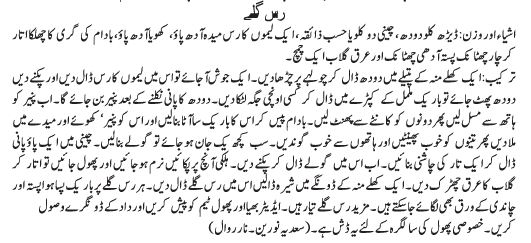 رس گلے
اشیاء اور وزن: ڈیڑھ کلو دودھ، چینی دو کلو یا حسب ذائقہ، ایک لیموں کا رس میدہ آدھ پاؤ، کھویا آدھ پاؤ، بادام کی گری کا چھلکا اتار
کر چار چھٹانک پستہ آدھی چھٹانک اور عرق گلاب ایک چمچ۔
ترکیب: ایک کھلے منہ کے پتیلے میں دودھ ڈال کر چولہے پر چڑھا دیں۔ ایک جوش آجائے تو اس میں لیموں کا رس ڈال دیں اور پکنے دیں
دودھ پھٹ جائے تو باریک ململ کے کپڑے میں ڈال کر کسی اونچی جگہ لٹکا دیں۔ دودھ کا پانی نکلنے کے بعد پنیر بن جائے گا۔ اب پنیر کو
ہاتھ سے مسل لیں پھر دونوں کو کانٹے سے پھینٹ لیں۔ بادام پیس کر اس کا باریک سا آٹا بنالیں اور اس کو پنیر، کھوئے اور میدے میں
ملا دیں پھر تینوں کو خوب پھینٹیں اور ہاتھوں سے خوب گوندیں۔ سب کچھ یک جان ہو جائے تو گولے بنالیں۔ چینی میں ایک پاؤ پانی
ڈال کر ایک تار کی چاشنی بنائیں۔ اب اس میں گولے ڈال کر پکنے دیں۔ ہلکی آنچ پر پکائیں نرم ہو جائیں اور پھول جائیں تو اتار کر
گلاب کا عرق چھڑک دیں۔ ایک کھلے منہ کے ڈونگے میں شیرہ ڈالیں اس میں رس گلے ڈال دیں۔ ہر رس گلے پر باریک پسا ہوا پستہ اور
چاندی کے ورق بھی لگائے جاسکتے ہیں۔ مزید رس گلے تیار ہیں۔ ایڈیٹر بھیا اور پھول ٹیم کو پیش کریں اور داد کے ڈونگرے وصول
کریں۔ خصوصی پھول کی سالگرہ کے لئے یہ ڈش ہے۔ (سعدیہ نورین۔ نارووال)